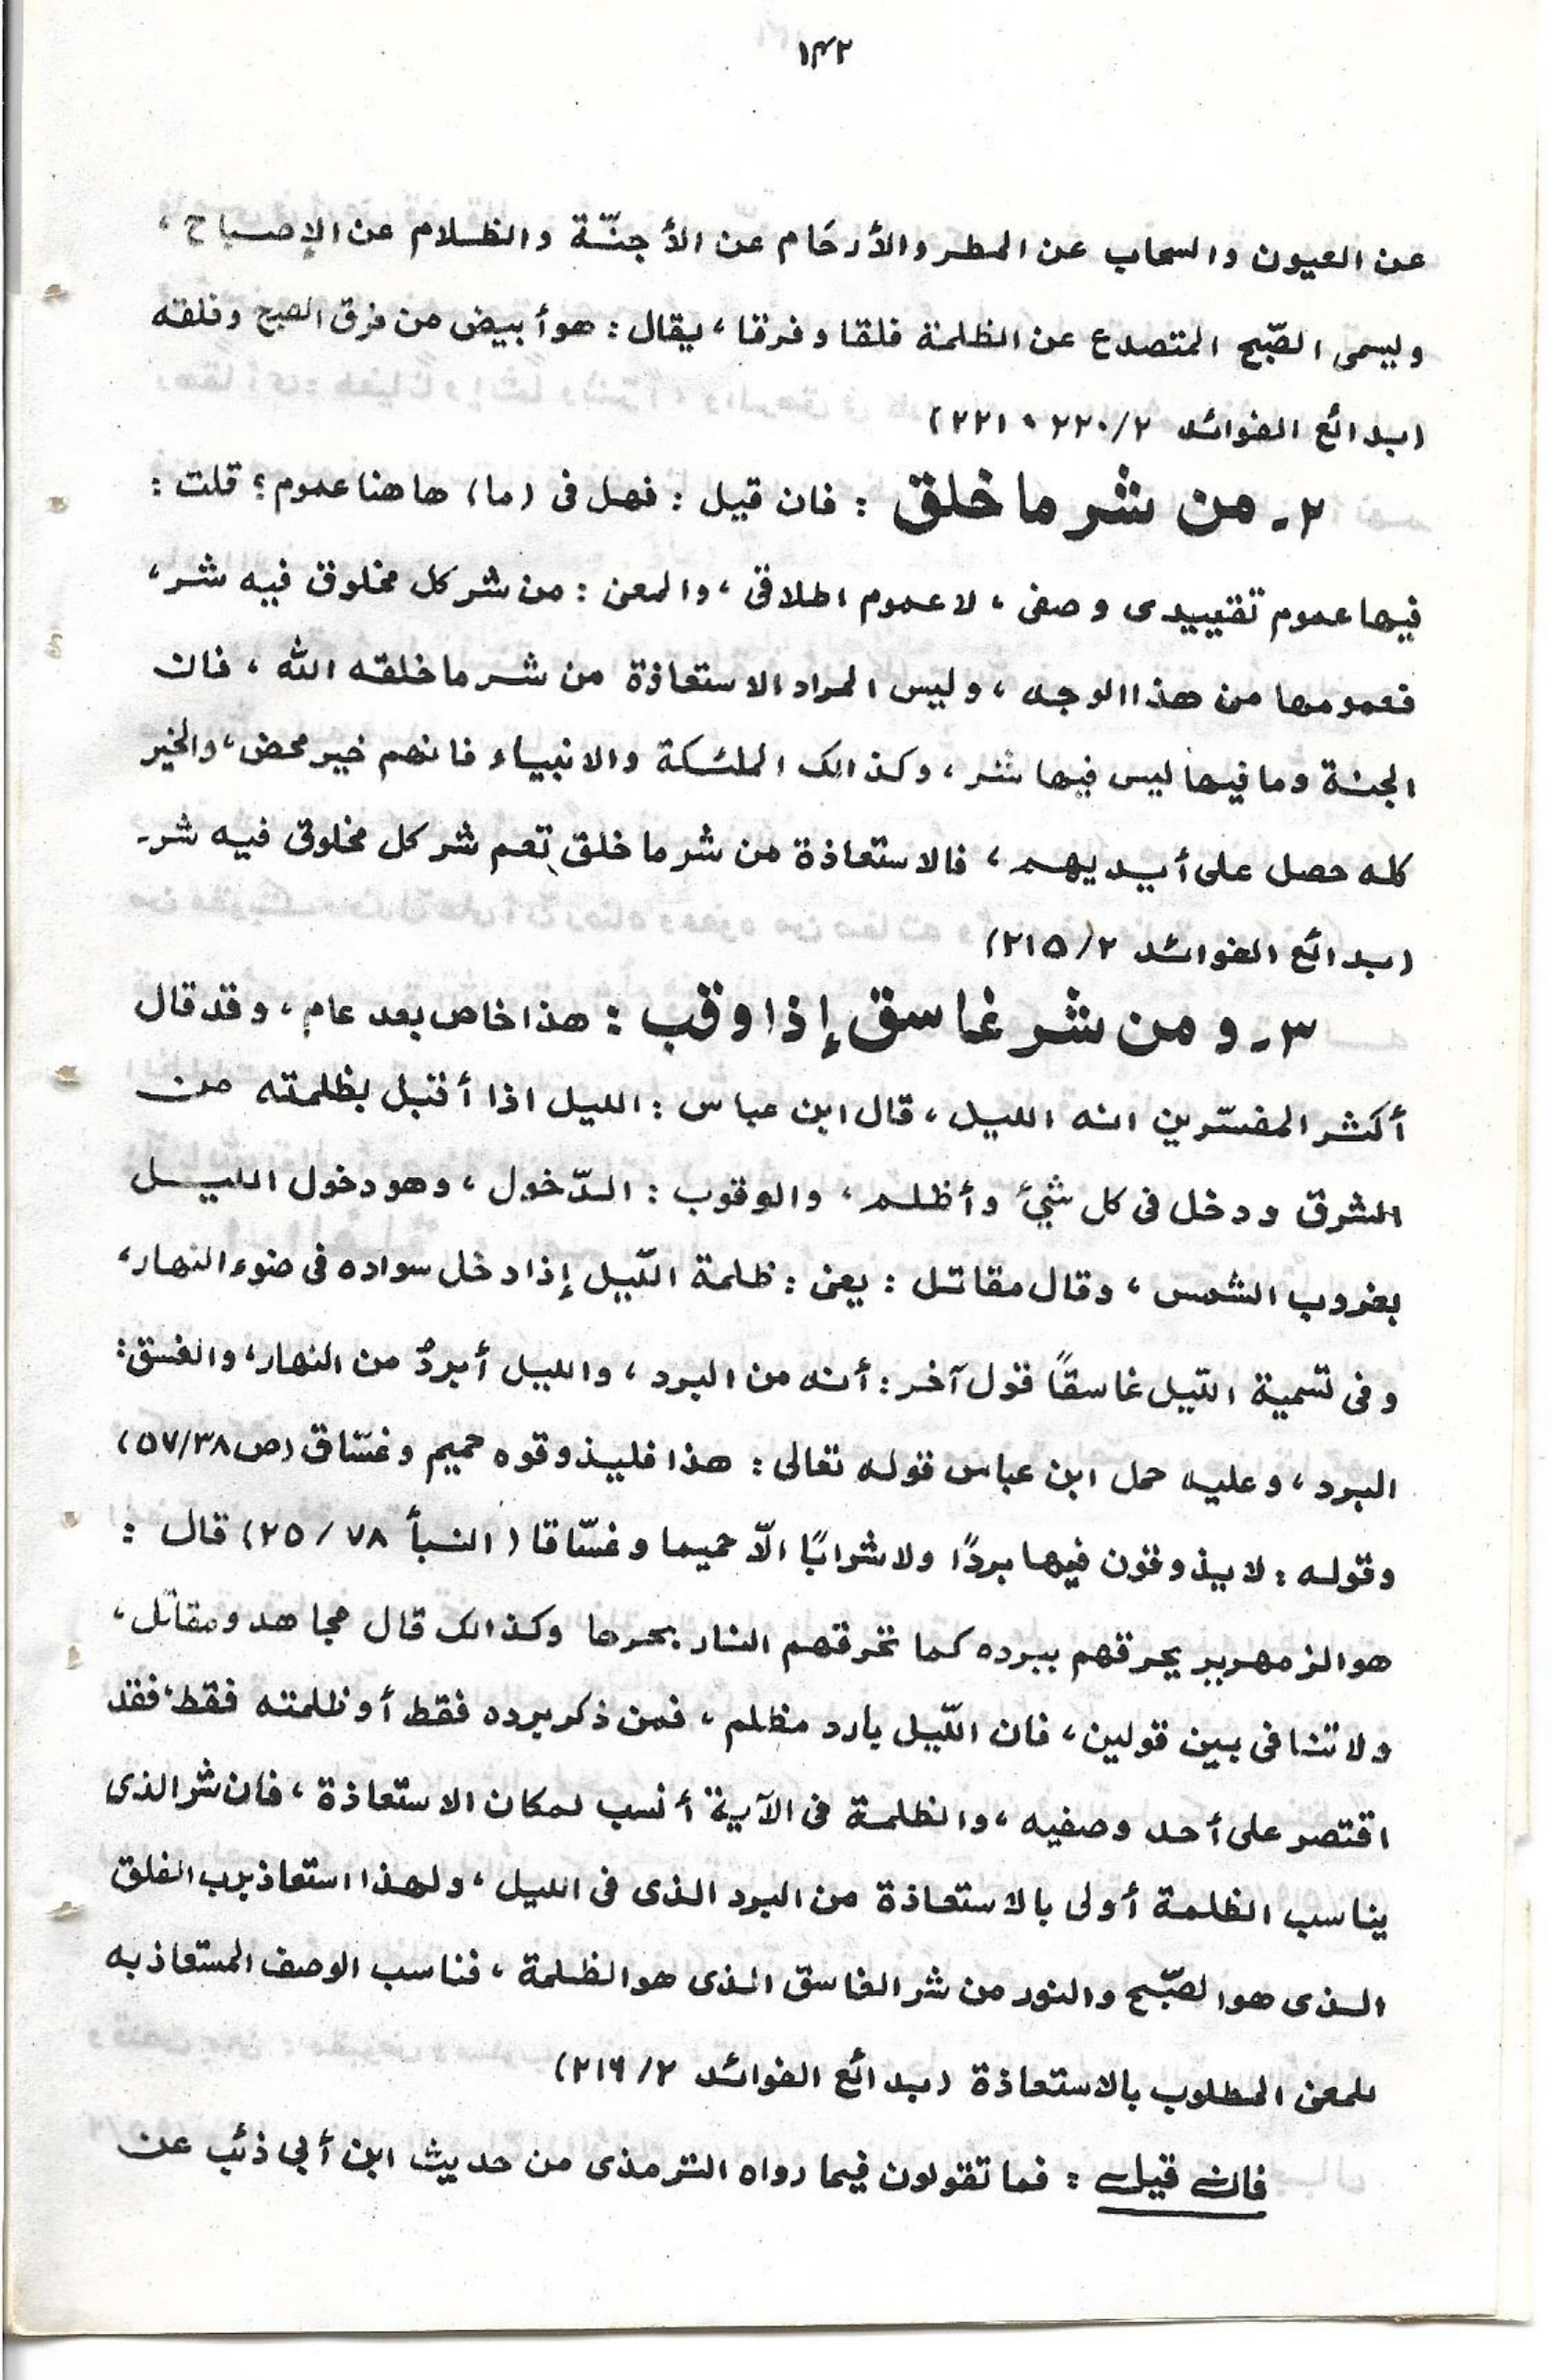 ۱۴۲
عن العيون والسحاب عن المطر والأرحَام عن الأجنّة والظلام عن الإصباح ،
ويسمى الصّبح المتصدع عن الظلمة فلقا وفرقا ، يقال : هو أبيض من فرق الصبح وفلقه
(بدائع الفوائد ۲/۲۲۰، ۲۲۱)
۲۔ من شر ما خلق : فان قيل : فهل فى (ما) هاهنا عموم ؟ قلت :
فيها عموم تقييدى وصفى ، لا عموم اطلاقى ، والمعنى : من شر كل مخلوق فيه شر ،
فعمومها من هذا الوجه ، وليس المراد الاستعاذة من شر ما خلقه الله ، فان
الجنة وما فيها ليس فيها شر ، وكذالك الملئكة والانبياء فانهم خير محض ، والخير
كله حصل على أيديهم ، فالاستعاذة من شر ما خلق تعم شر كل مخلوق فيه شر۔
(بدائع الفوائد ۲/۲۱۵)
۳۔ ومن شر غاسق إذا وقب : هذا خاص بعد عام ، وقد قال
أكثر المفسّرين انه الليل ، قال ابن عباس : الليل اذا أقبل بظلمته من
الشرق ودخل فى كل شيئ وأظلم ، والوقوب : الدّخول ، وهو دخول الليل
بغروب الشمس ، وقال مقاتل : يعنى : ظلمة اللّيل إذا دخل سواده فى ضوء النهار ،
وفى تسمية اللّيل غاسقًا قول آخر : أنه من البرد ، والليل أبردُ من النهار ، والغسق :
البرد ، وعليه حمل ابن عباس قوله تعالى : هذا فليذوقوه حميم وغسّاق (ص ۳۸/۵۷)
وقوله : لا يذوقون فيها بردًا ولا شرابًا الّا حميما وغسّاقا (النبأ ۷۸/۲۵) قال :
هو الزمهرير يحرقهم ببرده كما تحرقهم النار بحرها وكذالك قال مجاهد ومقاتل ،
ولا تنافى بين قولين ، فان اللّيل بارد مظلم ، فمن ذكر برده فقط أو ظلمته فقط ، فقد
اقتصر على أحد وصفيه ، والظلمة فى الآية أنسب لمكان الاستعاذة ، فان شر الذى
يناسب الظلمة أولى بالاستعاذة من البرد الذى فى الليل ، ولهذا استعاذ برب الفلق
الذى هو الصّبح والنور من شر الغاسق الذى هو الظلمة ، فناسب الوصف المستعاذ به
للمعنى المطلوب بالاستعاذة (بدائع الفوائد ۲/۲۱۶)
فان قيل : فما تقولون فيما رواه الترمذى من حديث ابن أبي ذئب عن